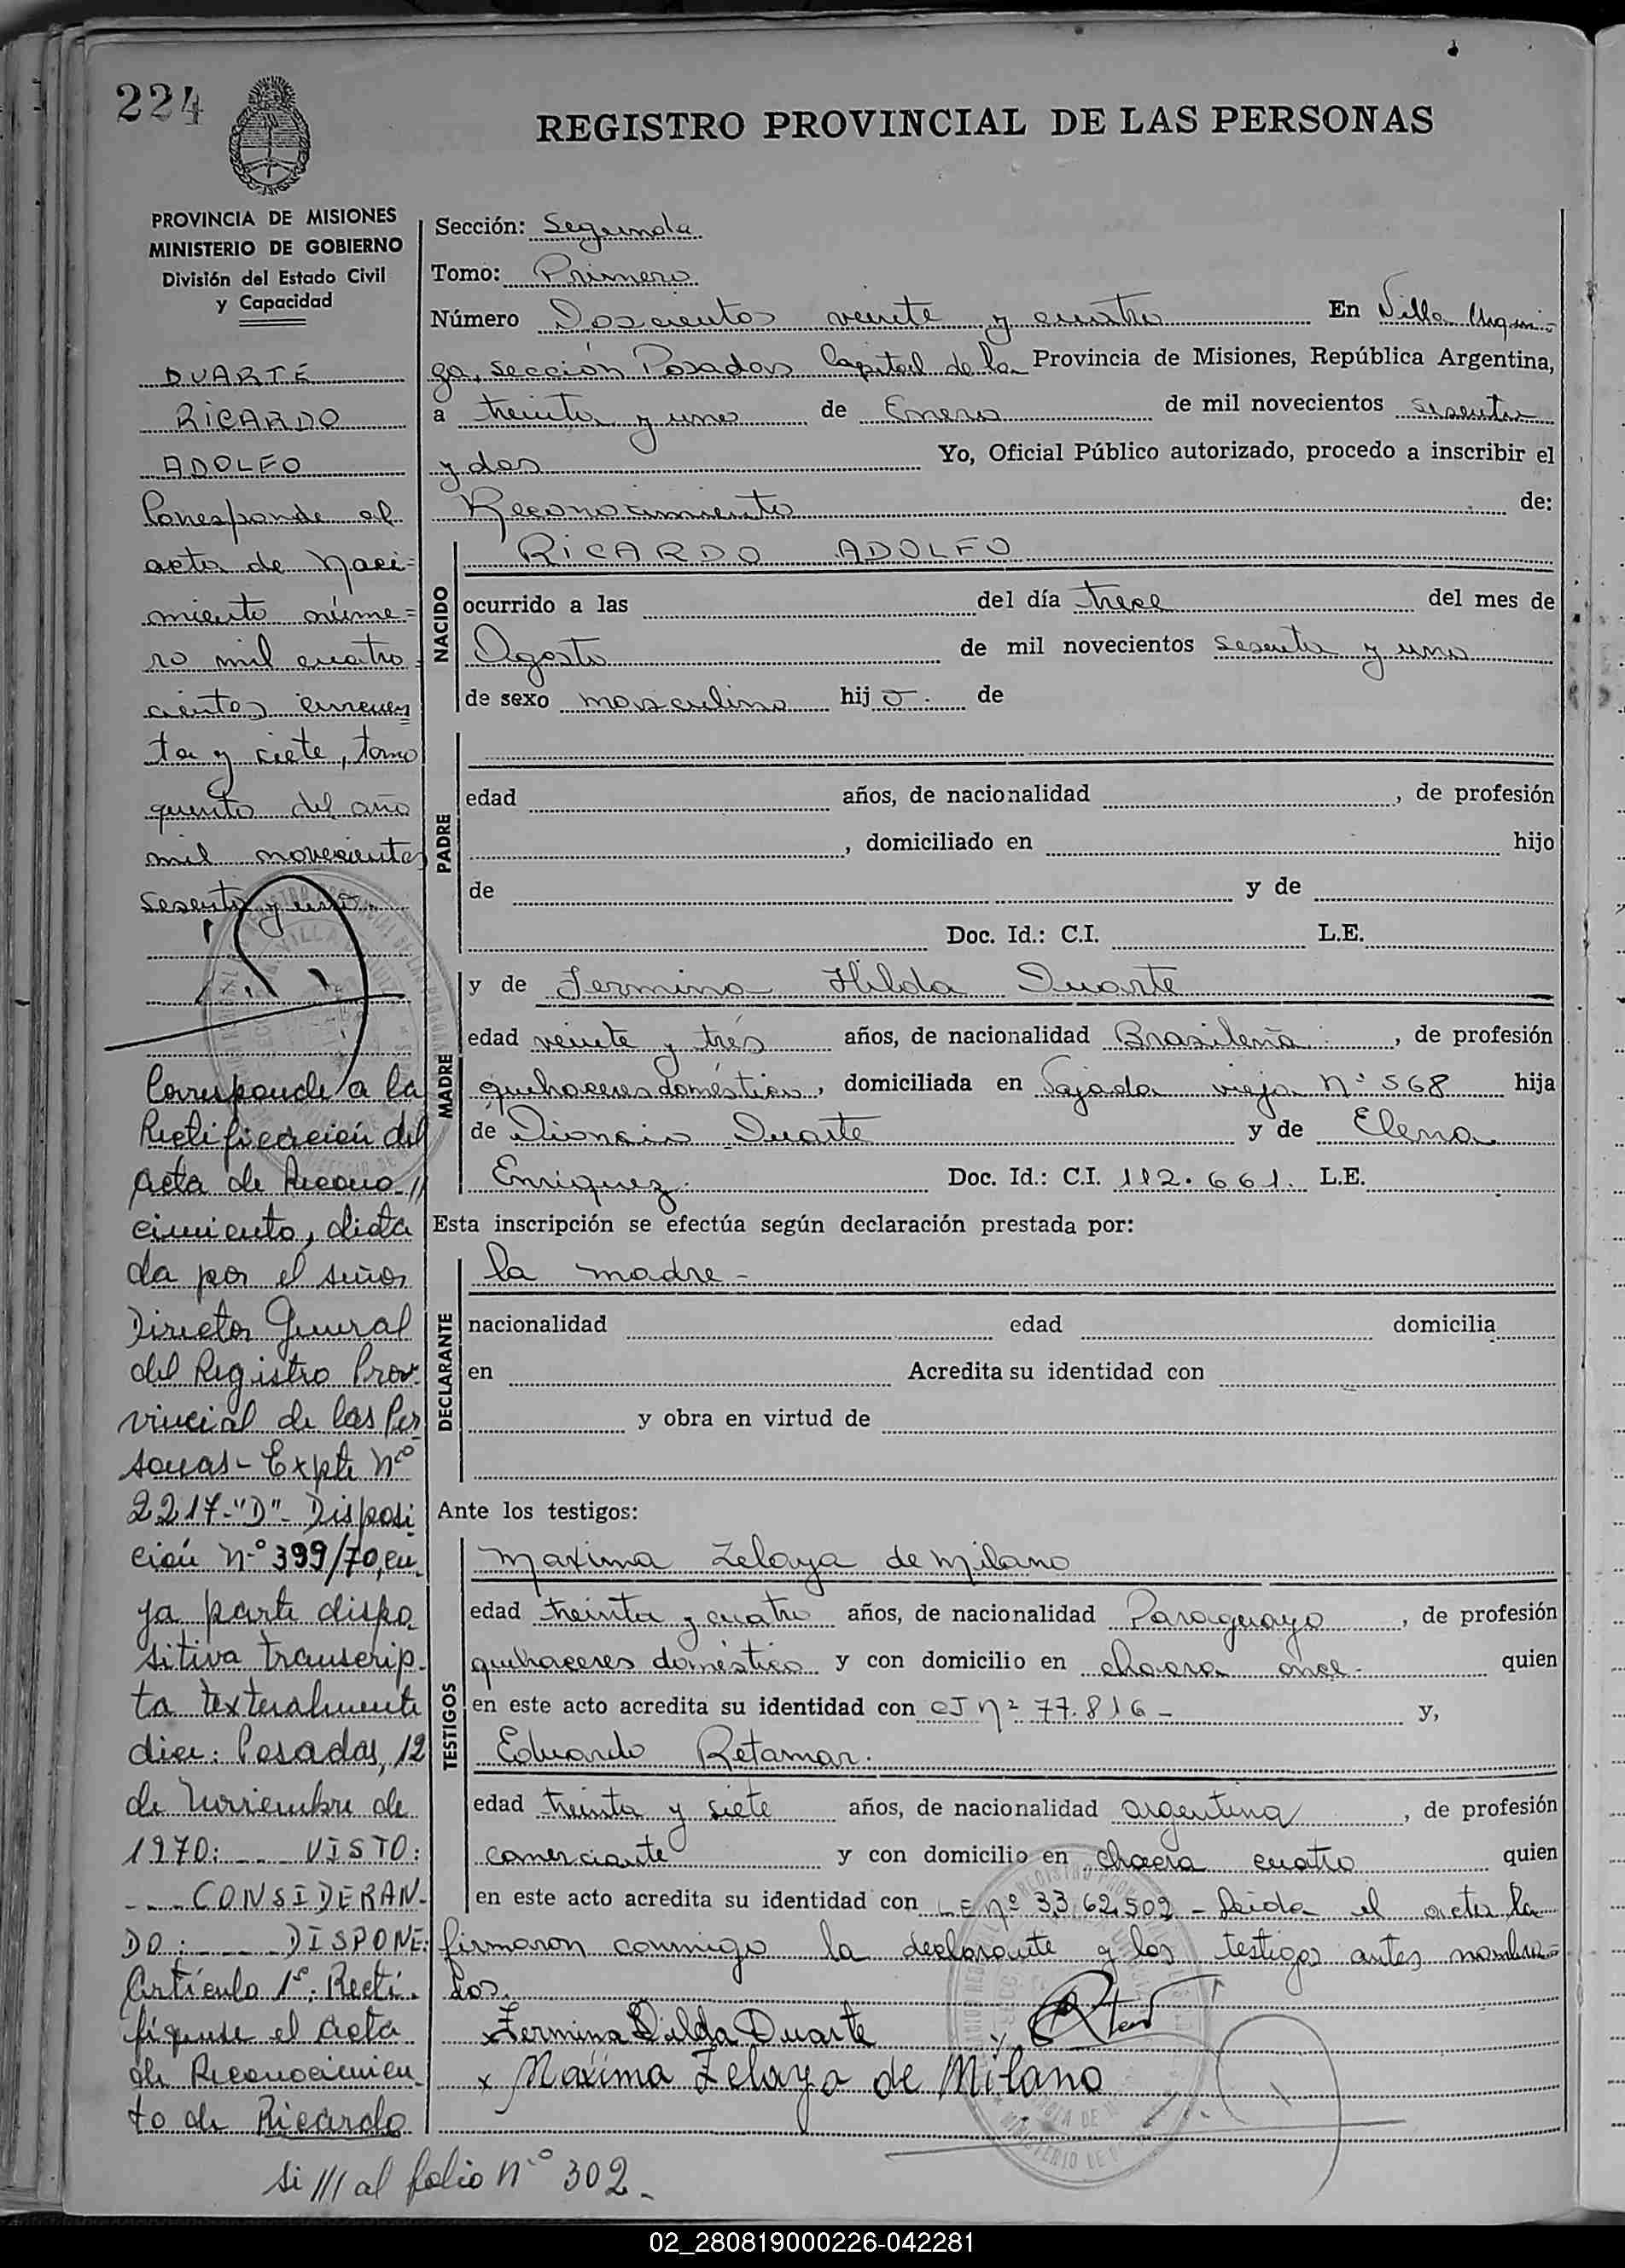 224
REGISTRO PROVINCIAL DE LAS PERSONAS
PROVINCIA DE MISIONES
MINISTERIO DE GOBIERNO
División del Estado Civil
y Capacidad
DUARTE
RICARDO
ADOLFO
Corresponde al
acta de Naci=
miento núme=
ro mil cuatro
cientos cincuen
ta y siete, tomo
quinto del año
mil novecientos
sesenta y uno.
Corresponde a la
Rectificación del
acta de Recono//
cimiento, dicta
da por el señor
Director General
del Registro Pro-
vincial de las Per
sonas - Expte Nº
2217-"D"- Disposi
ción Nº 399/70, cu
ya parte dispo
sitiva transcrip
ta textualmente
dice: Posadas, 12
de Noviembre de
1970: ... VISTO:
... CONSIDERAN-
DO: ... DISPONE:
Artículo 1º: Recti-
fíquese el acta
de Reconocimien
to de Ricardo
si /// al folio nº 302.-
Sección: Segunda
Tomo: Primero
Número Doscientos veinte y cuatro En Villa Urqui-
za, sección Posadas Capital de la Provincia de Misiones, República Argentina,
a treinta y uno de Enero de mil novecientos sesenta
y dos Yo, Oficial Público autorizado, procedo a inscribir el
Reconocimiento de:
NACIDO
RICARDO ADOLFO
ocurrido a las del día trece del mes de
Agosto de mil novecientos sesenta y uno
de sexo masculino hij o. de
PADRE
edad años, de nacionalidad , de profesión
, domiciliado en hijo
de y de
Doc. Id.: C.I. L.E.
MADRE
y de Fermina Hilda Duarte
edad veinte y tres años, de nacionalidad Brasileña , de profesión
quehaceres domésticos, domiciliada en Bajada vieja Nº 568 hija
de Dionisio Duarte y de Elena
Enriquez. Doc. Id.: C.I. 112.661. L.E.
Esta inscripción se efectúa según declaración prestada por:
DECLARANTE
la madre -
nacionalidad edad domicilia
en Acredita su identidad con
y obra en virtud de
Ante los testigos:
TESTIGOS
Maxima Zelaya de Milano
edad treinta y cuatro años, de nacionalidad Paraguayo , de profesión
quehaceres doméstico y con domicilio en chacra once- quien
en este acto acredita su identidad con CI Nº 77.816 - y,
Eduardo Retamar.
edad treinta y siete años, de nacionalidad argentina , de profesión
comerciante y con domicilio en chacra cuatro quien
en este acto acredita su identidad con LE Nº 3362502 - Leida el acta la
firmaron conmigo la declarante y los testigos antes nombra=
dos.
x Fermina Dalda Duarte
x Maxima Zelaya de Milano
02_280819000226-042281